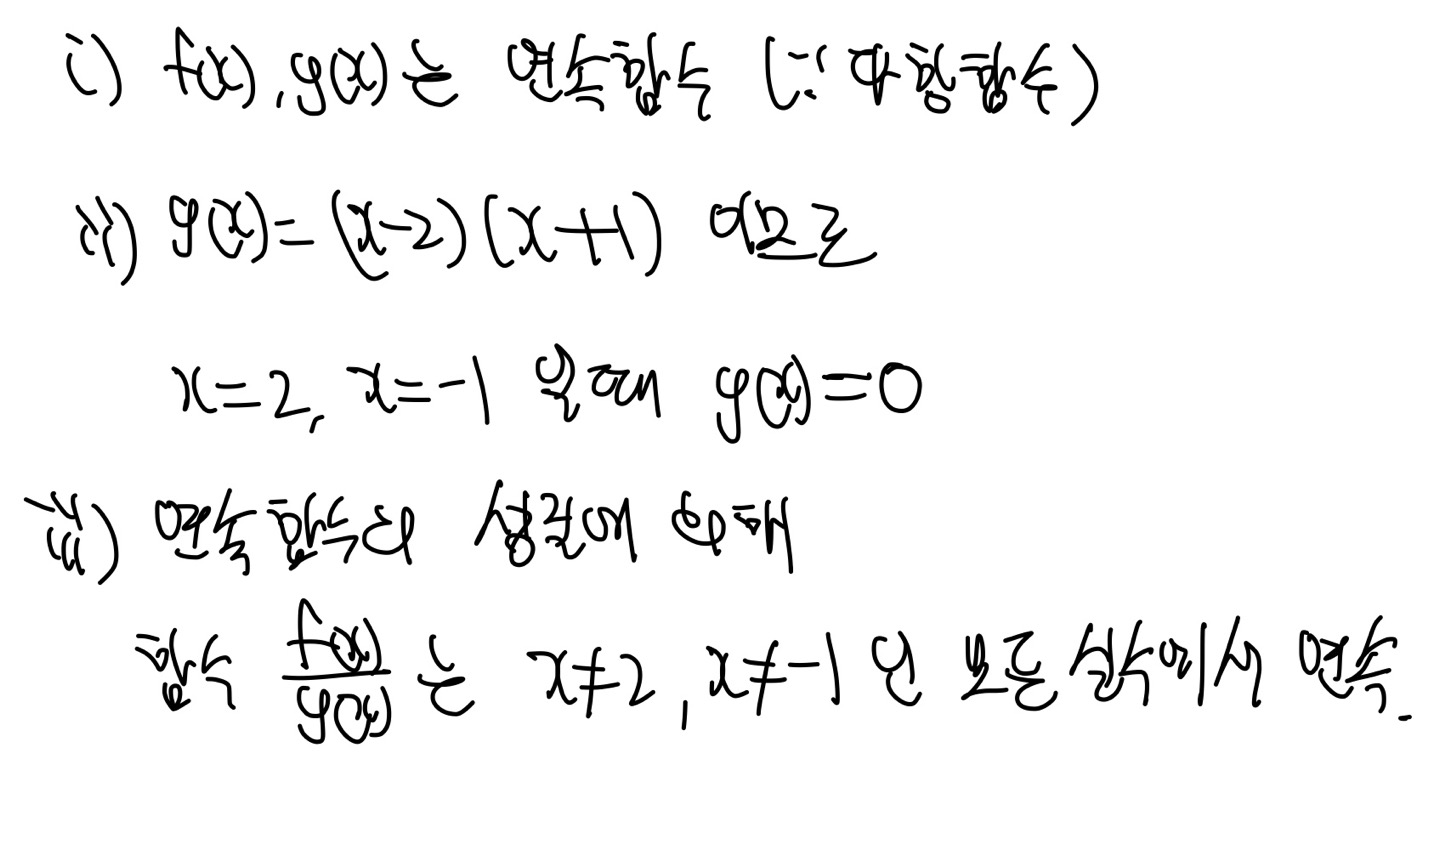 i) f(x), g(x)는 연속함수 (∵ 다항함수)
ii) g(x)=(x-2)(x+1) 이므로
x=2, x=-1 일때 g(x)=0
iii) 연속함수의 성질에 의해
함수 f(x)/g(x) 는 x≠2, x≠-1 인 모든 실수에서 연속.